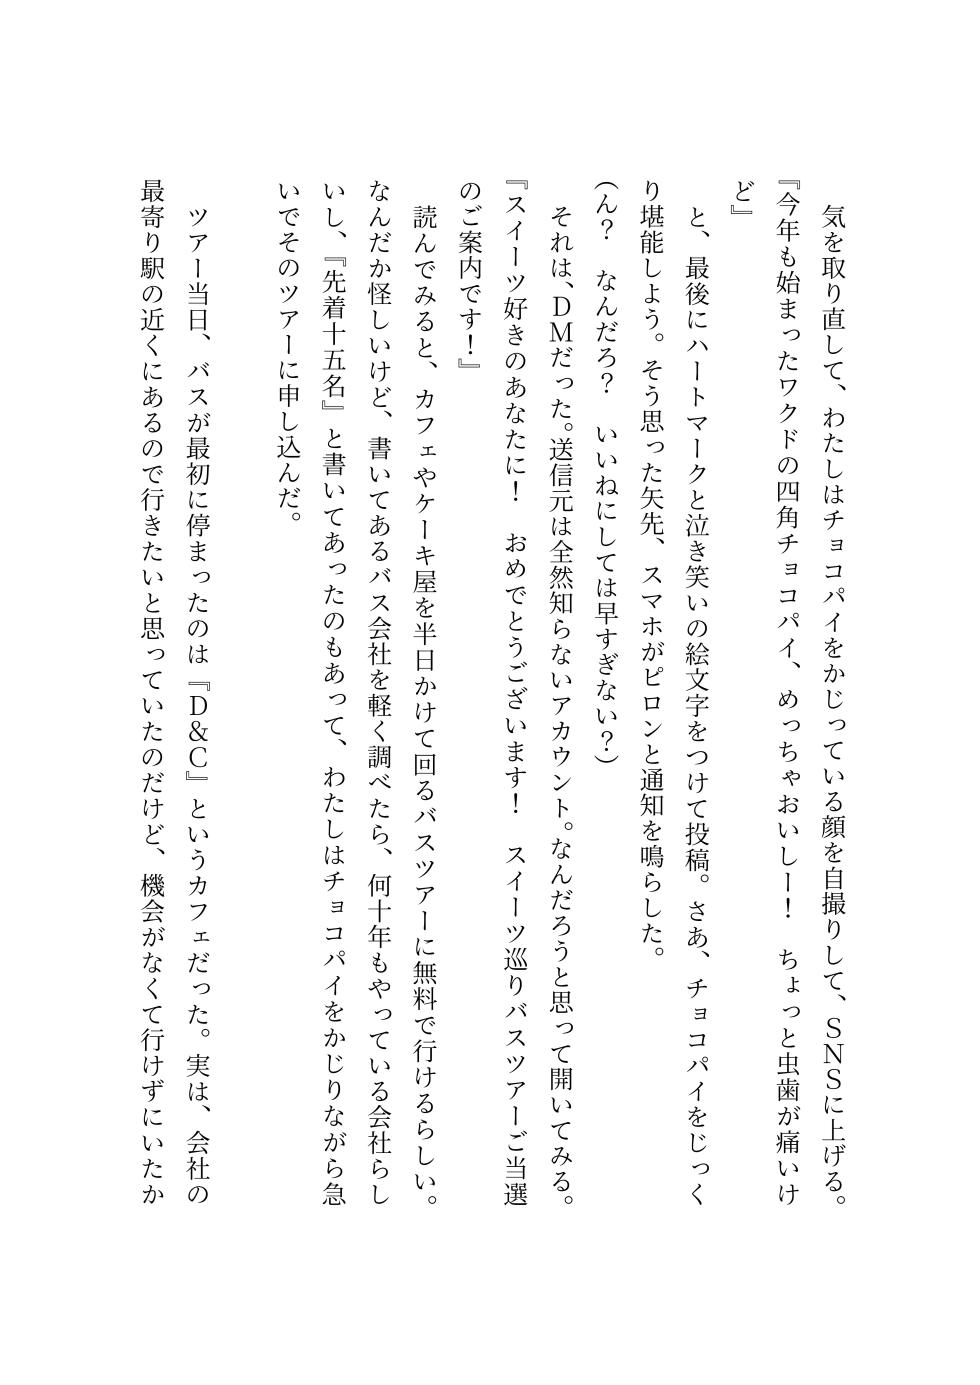 気を取り直して、わたしはチョコパイをかじっている顔を自撮りして、ＳＮＳに上げる。
『今年も始まったワクドの四角チョコパイ、めっちゃおいしー！　ちょっと虫歯が痛いけ
ど』
　と、最後にハートマークと泣き笑いの絵文字をつけて投稿。さあ、チョコパイをじっく
り堪能しよう。そう思った矢先、スマホがピロンと通知を鳴らした。
（ん？　なんだろ？　いいねにしては早すぎない？）
　それは、ＤＭだった。送信元は全然知らないアカウント。なんだろうと思って開いてみる。
『スイーツ好きのあなたに！　おめでとうございます！　スイーツ巡りバスツアーご当選
のご案内です！』
　読んでみると、カフェやケーキ屋を半日かけて回るバスツアーに無料で行けるらしい。
なんだか怪しいけど、書いてあるバス会社を軽く調べたら、何十年もやっている会社らし
いし、『先着十五名』と書いてあったのもあって、わたしはチョコパイをかじりながら急
いでそのツアーに申し込んだ。
　ツアー当日、バスが最初に停まったのは『Ｄ＆Ｃ』というカフェだった。実は、会社の
最寄り駅の近くにあるので行きたいと思っていたのだけど、機会がなくて行けずにいたか